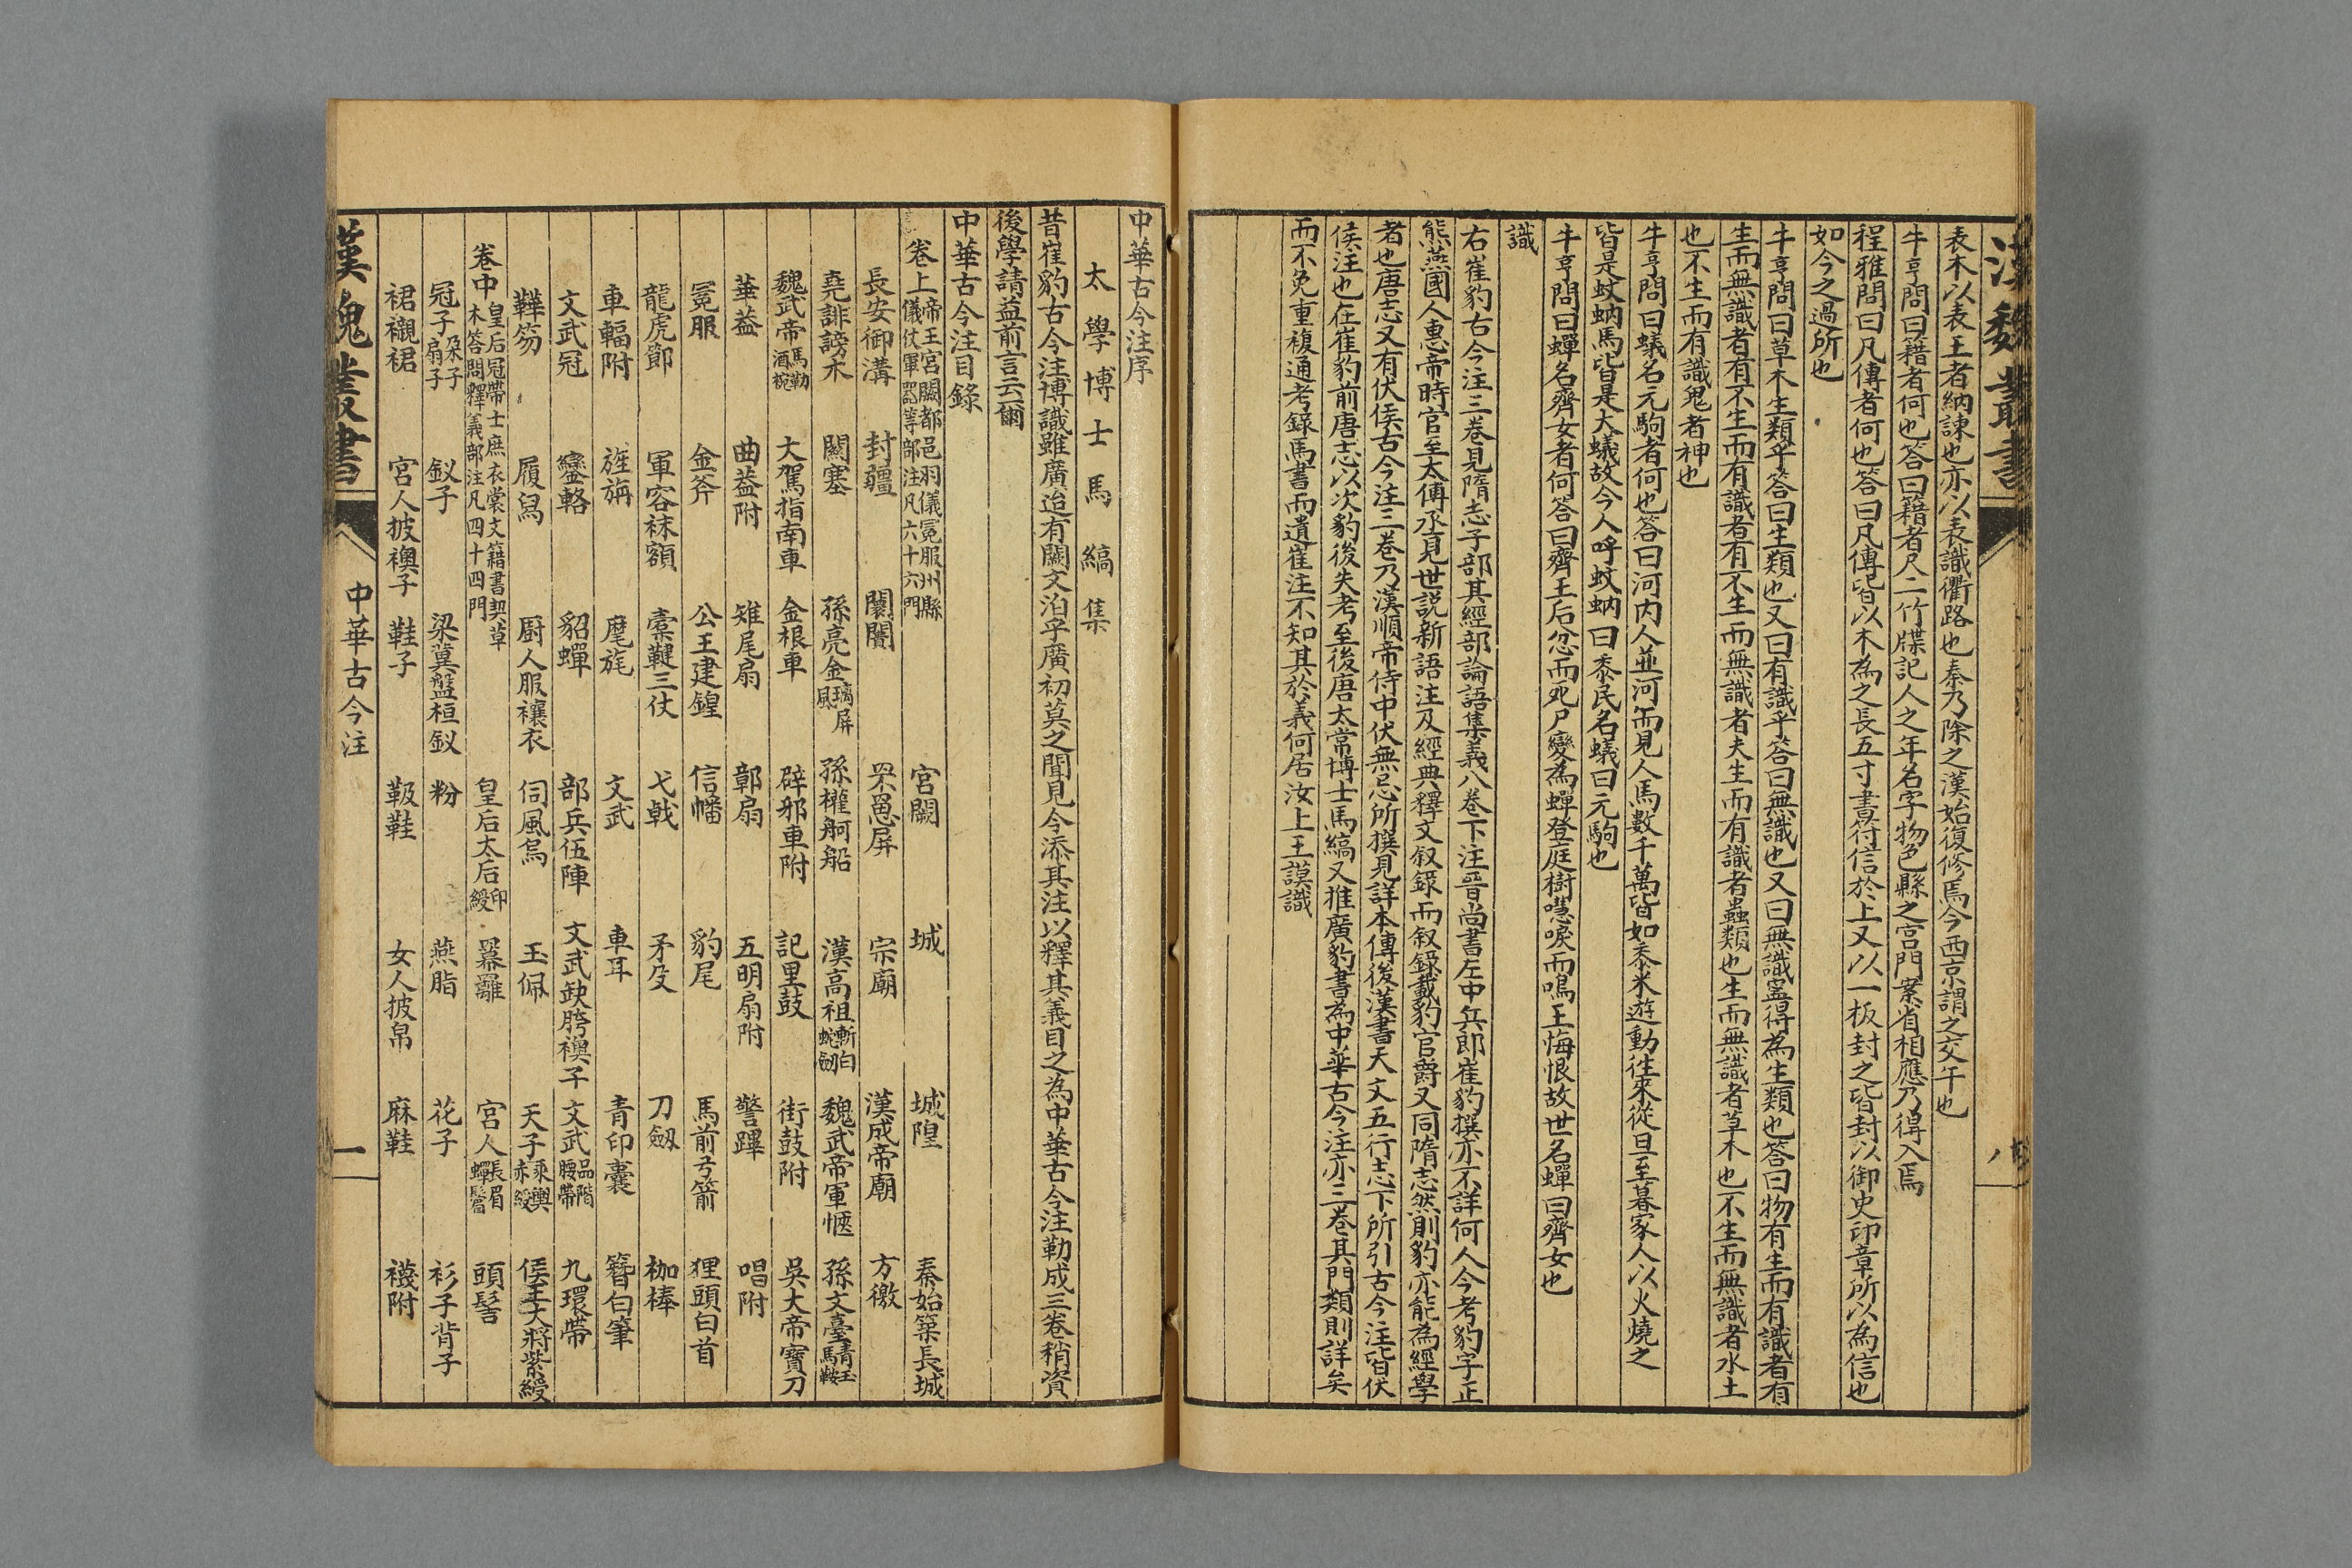 漢魏叢書
表木以表王者納諫也亦以表識衢路也秦乃除之漢始復修焉今西京謂之交午也
牛亨問曰籍者何也答曰籍者尺二竹牒記人之年名字物色縣之宫門案省相應乃得入焉
程雅問曰凡傳者何也答曰凡傳皆以木為之長五寸書符信於上又以一板封之皆封以御史印章所以為信也
如今之過所也
牛亨問曰草木生類乎答曰生類也又曰有識乎答曰無識也又曰無識寧得為生類也答曰物有生而有識者有
生而無識者有不生而有識者有不生而無識者夫生而有識者蟲類也生而無識者草木也不生而無識者水土
也不生而有識鬼者神也
牛亨問曰蟻名元駒者何也答曰河内人並河而見人馬數千萬皆如黍米遊動往來從旦至暮家人以火燒之
皆是蚊蚋馬皆是大蟻故今人呼蚊蚋曰黍民名蟻曰元駒也
牛亨問曰蟬名齊女者何答曰齊王后忿而死尸變為蟬登庭樹嘒唳而鳴王悔恨故世名蟬曰齊女也
識
右崔豹古今注三巻見隋志子部其經部論語集義八巻下注晉尚書左中兵郎崔豹撰亦不詳何人今考豹字正
熊燕國人惠帝時官至太傅丞見世説新語注及經典釋文叙録而叙錄載豹官爵又同隋志然則豹亦能為經學
者也唐志又有伏侯古今注三巻乃漢順帝侍中伏無忌所撰見詳本傳後漢書天文五行志下所引古今注皆伏
侯注也在崔豹前唐志以次豹後失考至後唐太常博士馬縞又推廣豹書為中華古今注亦三巻其門類則詳矣
而不免重複通考錄馬書而遺崔注不知其於義何居汝上王謨識
中華古今注序
太學博士馬縞集
昔崔豹古今注博識雖廣迨有闕文洎乎廣初莫之聞見今添其注以釋其義目之為中華古今注勒成三巻稍資
後學請益前言云爾
中華古今注目錄
巻上帝王宫闕都邑羽儀冕服州縣儀仗軍器等部注凡六十六門 宫闕 城 城隍 秦始築長城
長安御溝 封疆 闤闠 罘罳屏 宗廟 漢成帝廟 方徼
堯誹謗木 關塞 孫亮金璃屏風 孫權舸船 漢高祖斬白蛇劒 魏武帝軍幄 孫文臺青玉馬鞍
魏武帝馬勒酒椀 大駕指南車 金根車 辟邪車附 記里鼓 街鼓附 吳大帝寶刀
華葢 曲葢附 雉尾扇 鄣扇 五明扇附 警蹕 唱附
冕服 金斧 公王建鍠 信幡 豹尾 馬前弓箭 狸頭白首
龍虎節 軍容袜額 櫜鞬三仗 戈戟 矛殳 刀劔 枷棒
車輻附 旌旃 麾旄 文武 車耳 青印囊 簪白筆
文武冠 鑾輅 貂蟬 部兵伍陣 文武缺胯襖子 文武品階腰帶 九環帶
鞾笏 履舃 厨人服襛衣 伺風烏 玉佩 天子乘輿赤綬 侯王大將紫綬
巻中皇后冠帶士庶衣裳文籍書契草木答問釋義部注凡四十四門 皇后太后印綬 羃䍦 宫人長眉蟬鬢 頭髻
冠子朶子扇子 釵子 梁冀盤桓釵 粉 燕脂 花子 衫子背子
裙襯裙 宫人披襖子 鞋子 靸鞋 女人披帛 麻鞋 襪附
漢魏叢書 中華古今注 一